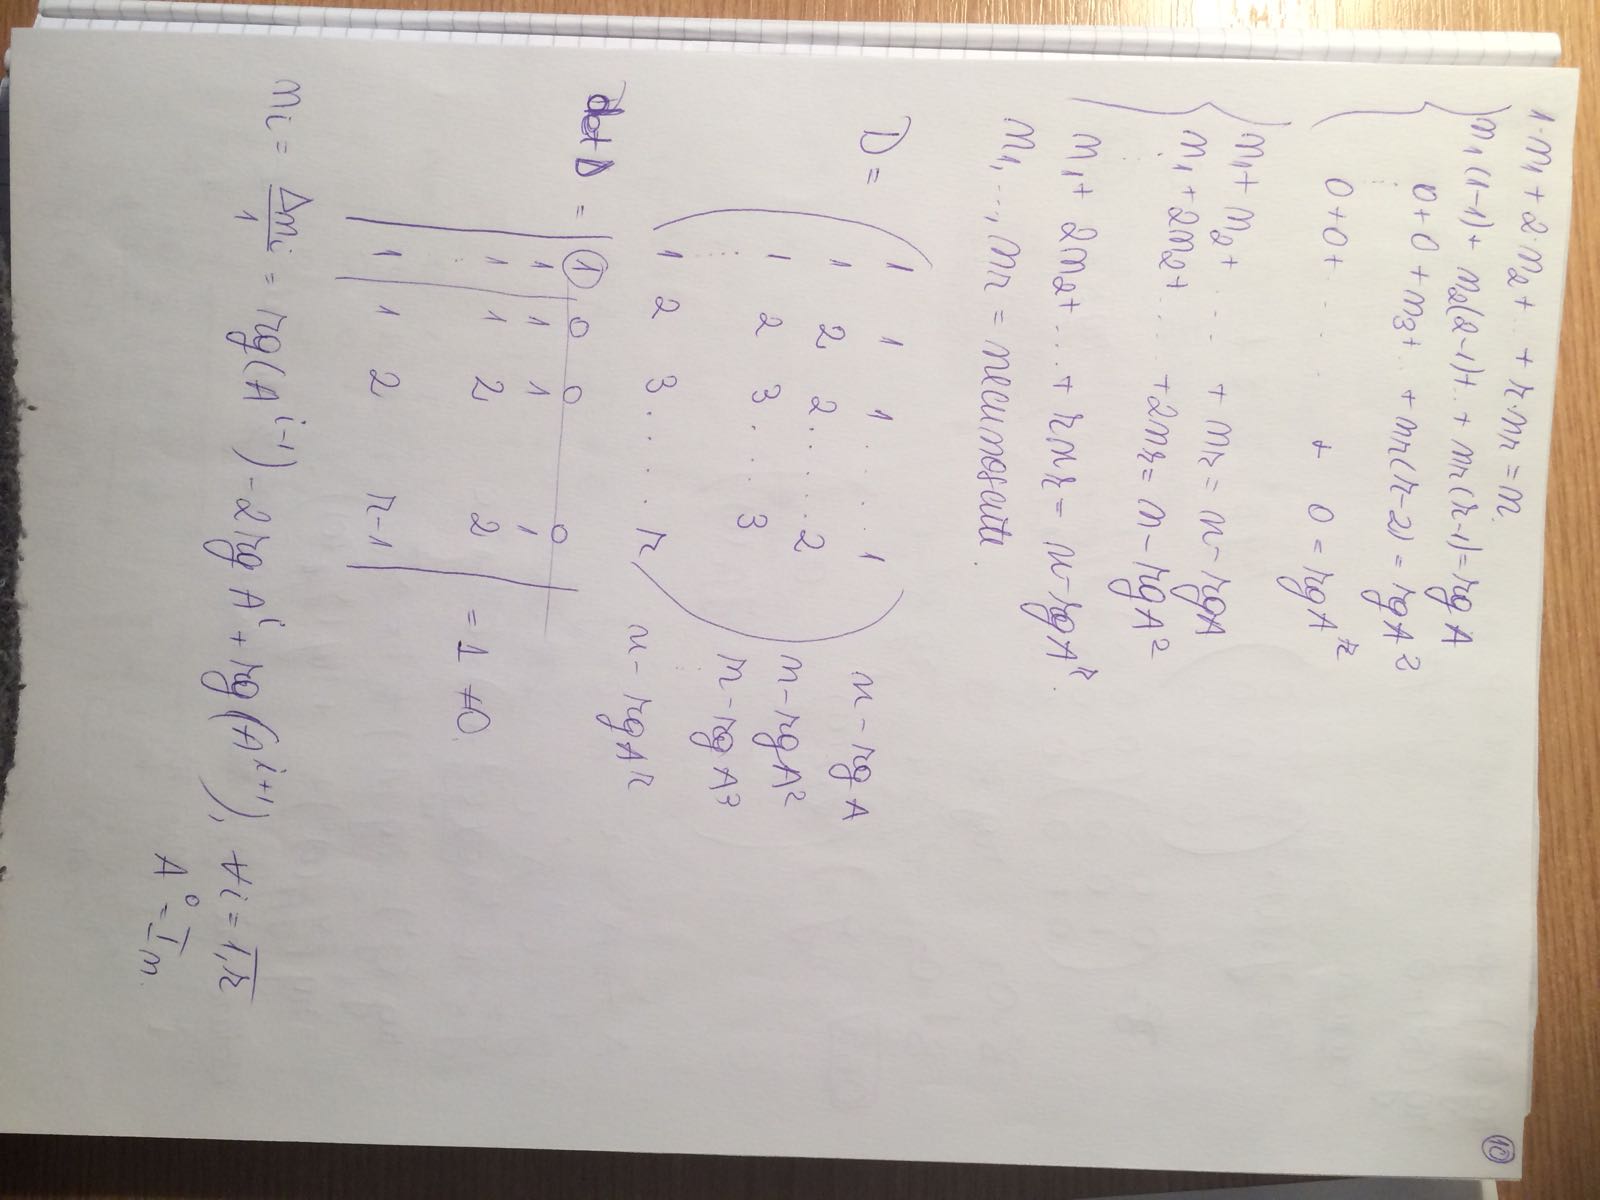 10
1·m1 + 2·m2 + ... + r·mr = n.
m1(1-1) + m2(2-1) + .. + mr(r-1) = rg A
0 + 0 + m3 + .. + mr(r-2) = rg A²
⋮
0 + 0 + . . . + 0 = rg A^r
m1 + m2 + . . . + mr = n - rg A
m1 + 2m2 + . . . + 2mr = n - rg A²
⋮
m1 + 2m2 + ... + r mr = n - rg A^r.
m1, ..., mr = necunoscute.
D = ( 1 1 1 . . . . 1 ) n - rg A
1 2 2 . . . . 2 n - rg A²
1 2 3 . . . 3 n - rg A³
⋮
1 2 3 . . . . r n - rg A^r
det D = | 1 0 0 0 |
1 1 1 1
1 1 2 2 = 1 ≠ 0.
⋮
1 1 2 r-1
mi = Δmi/1 = rg(A^{i-1}) - 2 rg A^i + rg(A^{i+1}), ∀i = 1,r
A^0 = In.